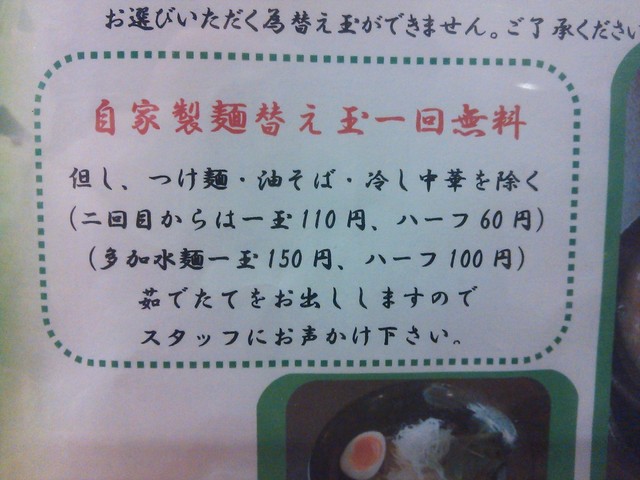 お選びいただく為替え玉ができません。ご了承ください
自家製麺替え玉一回無料
但し、つけ麺・油そば・冷し中華を除く
(二回目からは一玉110円、ハーフ60円)
(多加水麺一玉150円、ハーフ100円)
茹でたてをお出ししますので
スタッフにお声かけ下さい。